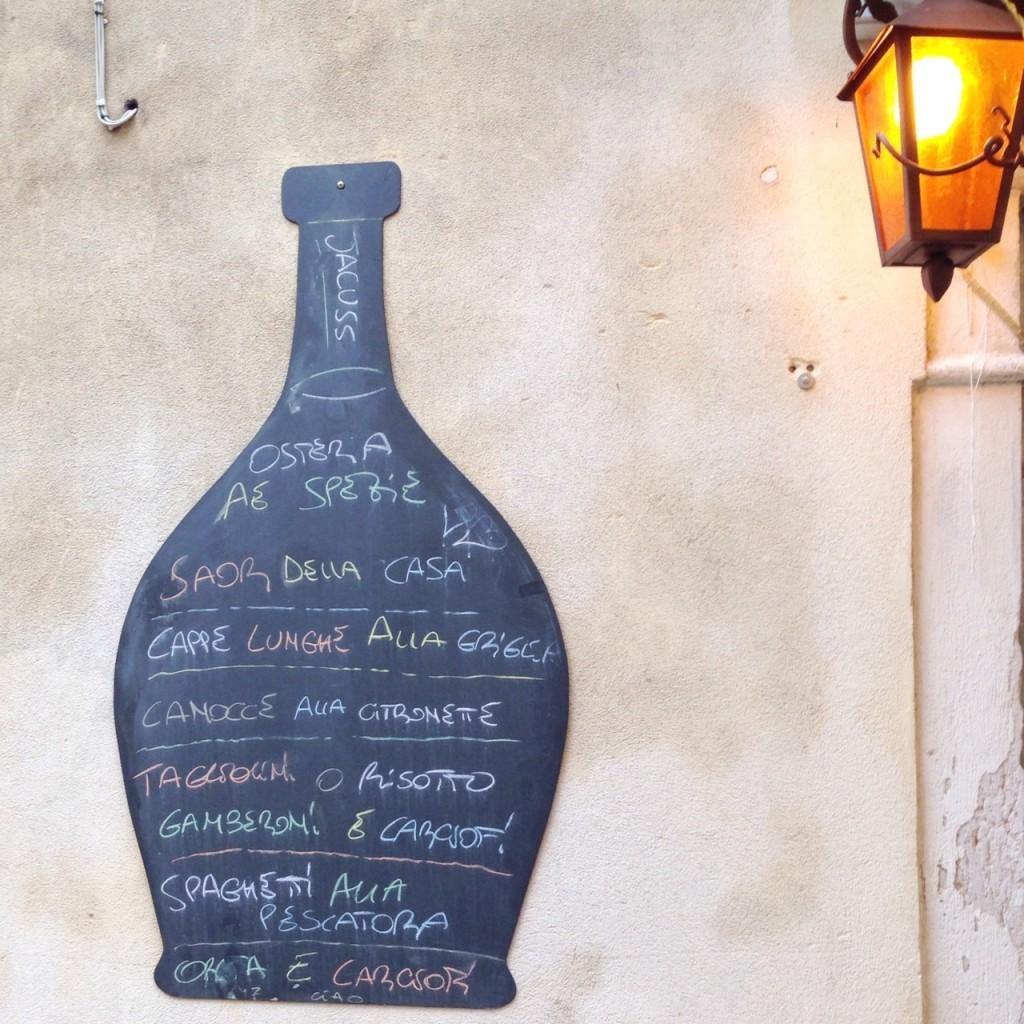 JACUSS
OSTERIA
AE SPEZIE
SAOR DELLA CASA
CAPPE LUNGHE ALLA GRIGLIA
CANOCCE ALLA CITRONETTE
TAGLIOLINI O RISOTTO
GAMBERONI E CARCIOFI
SPAGHETTI ALLA
PESCATORA
ORATA E CARCIOFI
CIAO